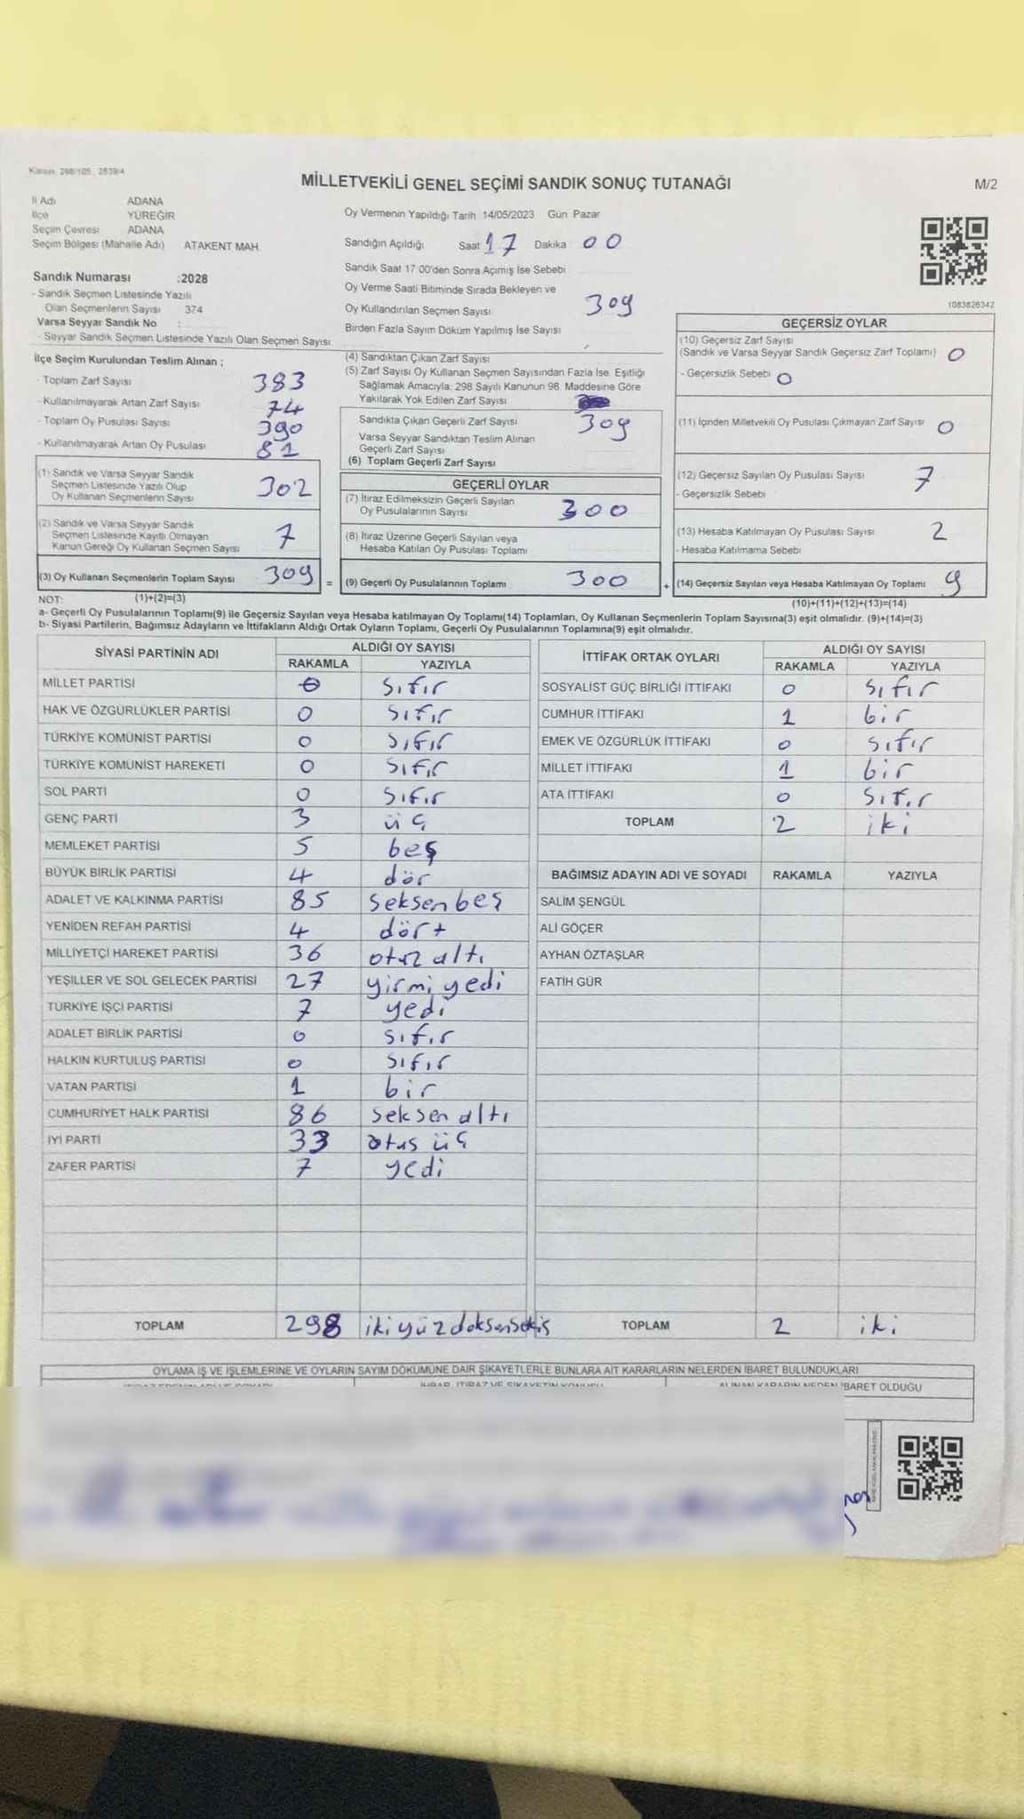 Kanun: 298/105 , 2839/4
MİLLETVEKİLİ GENEL SEÇİMİ SANDIK SONUÇ TUTANAĞI
M/2
İl Adı ADANA
İlçe YÜREĞİR
Seçim Çevresi ADANA
Seçim Bölgesi (Mahalle Adı) ATAKENT MAH.
Oy Vermenin Yapıldığı Tarih 14/05/2023 Gün Pazar
Sandığın Açıldığı Saat 17 Dakika 00
Sandık Saat 17:00'den Sonra Açılmış İse Sebebi
Oy Verme Saati Bitiminde Sırada Bekleyen ve
Oy Kullandırılan Seçmen Sayısı 309
Birden Fazla Sayım Döküm Yapılmış İse Sayısı
1083826342
Sandık Numarası :2028
- Sandık Seçmen Listesinde Yazılı
Olan Seçmenlerin Sayısı 374
Varsa Seyyar Sandık No :
- Seyyar Sandık Seçmen Listesinde Yazılı Olan Seçmen Sayısı
İlçe Seçim Kurulundan Teslim Alınan ;
- Toplam Zarf Sayısı 383
- Kullanılmayarak Artan Zarf Sayısı 74
- Toplam Oy Pusulası Sayısı 390
- Kullanılmayarak Artan Oy Pusulası 81
(1) Sandık ve Varsa Seyyar Sandık
Seçmen Listesinde Yazılı Olup
Oy Kullanan Seçmenlerin Sayısı 302
(2) Sandık ve Varsa Seyyar Sandık
Seçmen Listesinde Kayıtlı Olmayan
Kanun Gereği Oy Kullanan Seçmen Sayısı 7
(3) Oy Kullanan Seçmenlerin Toplam Sayısı 309 =
(4) Sandıktan Çıkan Zarf Sayısı
(5) Zarf Sayısı Oy Kullanan Seçmen Sayısından Fazla İse, Eşitliği
Sağlamak Amacıyla, 298 Sayılı Kanunun 98. Maddesine Göre
Yakılarak Yok Edilen Zarf Sayısı
Sandıkta Çıkan Geçerli Zarf Sayısı 309
Varsa Seyyar Sandıktan Teslim Alınan
Geçerli Zarf Sayısı
(6) Toplam Geçerli Zarf Sayısı
GEÇERLİ OYLAR
(7) İtiraz Edilmeksizin Geçerli Sayılan
Oy Pusulalarının Sayısı 300
(8) İtiraz Üzerine Geçerli Sayılan veya
Hesaba Katılan Oy Pusulası Toplamı
(9) Geçerli Oy Pusulalarının Toplamı 300 +
GEÇERSİZ OYLAR
(10) Geçersiz Zarf Sayısı
(Sandık ve Varsa Seyyar Sandık Geçersiz Zarf Toplamı) 0
- Geçersizlik Sebebi 0
(11) İçinden Milletvekili Oy Pusulası Çıkmayan Zarf Sayısı 0
(12) Geçersiz Sayılan Oy Pusulası Sayısı 7
- Geçersizlik Sebebi
(13) Hesaba Katılmayan Oy Pusulası Sayısı 2
- Hesaba Katılmama Sebebi
(14) Geçersiz Sayılan veya Hesaba Katılmayan Oy Toplamı 9
NOT: (1)+(2)=(3) (10)+(11)+(12)+(13)=(14)
a- Geçerli Oy Pusulalarının Toplamı(9) ile Geçersiz Sayılan veya Hesaba katılmayan Oy Toplamı(14) Toplamları, Oy Kullanan Seçmenlerin Toplam Sayısına(3) eşit olmalıdır. (9)+(14)=(3)
b- Siyasi Partilerin, Bağımsız Adayların ve İttifakların Aldığı Ortak Oyların Toplamı, Geçerli Oy Pusulalarının Toplamına(9) eşit olmalıdır.
SİYASİ PARTİNİN ADI ALDIĞI OY SAYISI
RAKAMLA YAZIYLA
MİLLET PARTİSİ 0 Sıfır
HAK VE ÖZGÜRLÜKLER PARTİSİ 0 Sıfır
TÜRKİYE KOMÜNİST PARTİSİ 0 Sıfır
TÜRKİYE KOMÜNİST HAREKETİ 0 Sıfır
SOL PARTİ 0 Sıfır
GENÇ PARTİ 3 üç
MEMLEKET PARTİSİ 5 beş
BÜYÜK BİRLİK PARTİSİ 4 dör
ADALET VE KALKINMA PARTİSİ 85 Seksenbeş
YENİDEN REFAH PARTİSİ 4 dört
MİLLİYETÇİ HAREKET PARTİSİ 36 otuz altı
YEŞİLLER VE SOL GELECEK PARTİSİ 27 yirmi yedi
TÜRKİYE İŞÇİ PARTİSİ 7 yedi
ADALET BİRLİK PARTİSİ 0 Sıfır
HALKIN KURTULUŞ PARTİSİ 0 Sıfır
VATAN PARTİSİ 1 bir
CUMHURİYET HALK PARTİSİ 86 Seksen altı
İYİ PARTİ 33 otus üç
ZAFER PARTİSİ 7 yedi
TOPLAM 298 ikiyüzdoksansekiz
İTTİFAK ORTAK OYLARI ALDIĞI OY SAYISI
RAKAMLA YAZIYLA
SOSYALİST GÜÇ BİRLİĞİ İTTİFAKI 0 Sıfır
CUMHUR İTTİFAKI 1 bir
EMEK VE ÖZGÜRLÜK İTTİFAKI 0 Sıfır
MİLLET İTTİFAKI 1 bir
ATA İTTİFAKI 0 Sıfır
TOPLAM 2 iki
BAĞIMSIZ ADAYIN ADI VE SOYADI RAKAMLA YAZIYLA
SALİM ŞENGÜL
ALİ GÖÇER
AYHAN ÖZTAŞLAR
FATİH GÜR
TOPLAM 2 iki
OYLAMA İŞ VE İŞLEMLERİNE VE OYLARIN SAYIM DÖKÜMÜNE DAİR ŞİKAYETLERLE BUNLARA AİT KARARLARIN NELERDEN İBARET BULUNDUKLARI
İBARET OLDUĞU